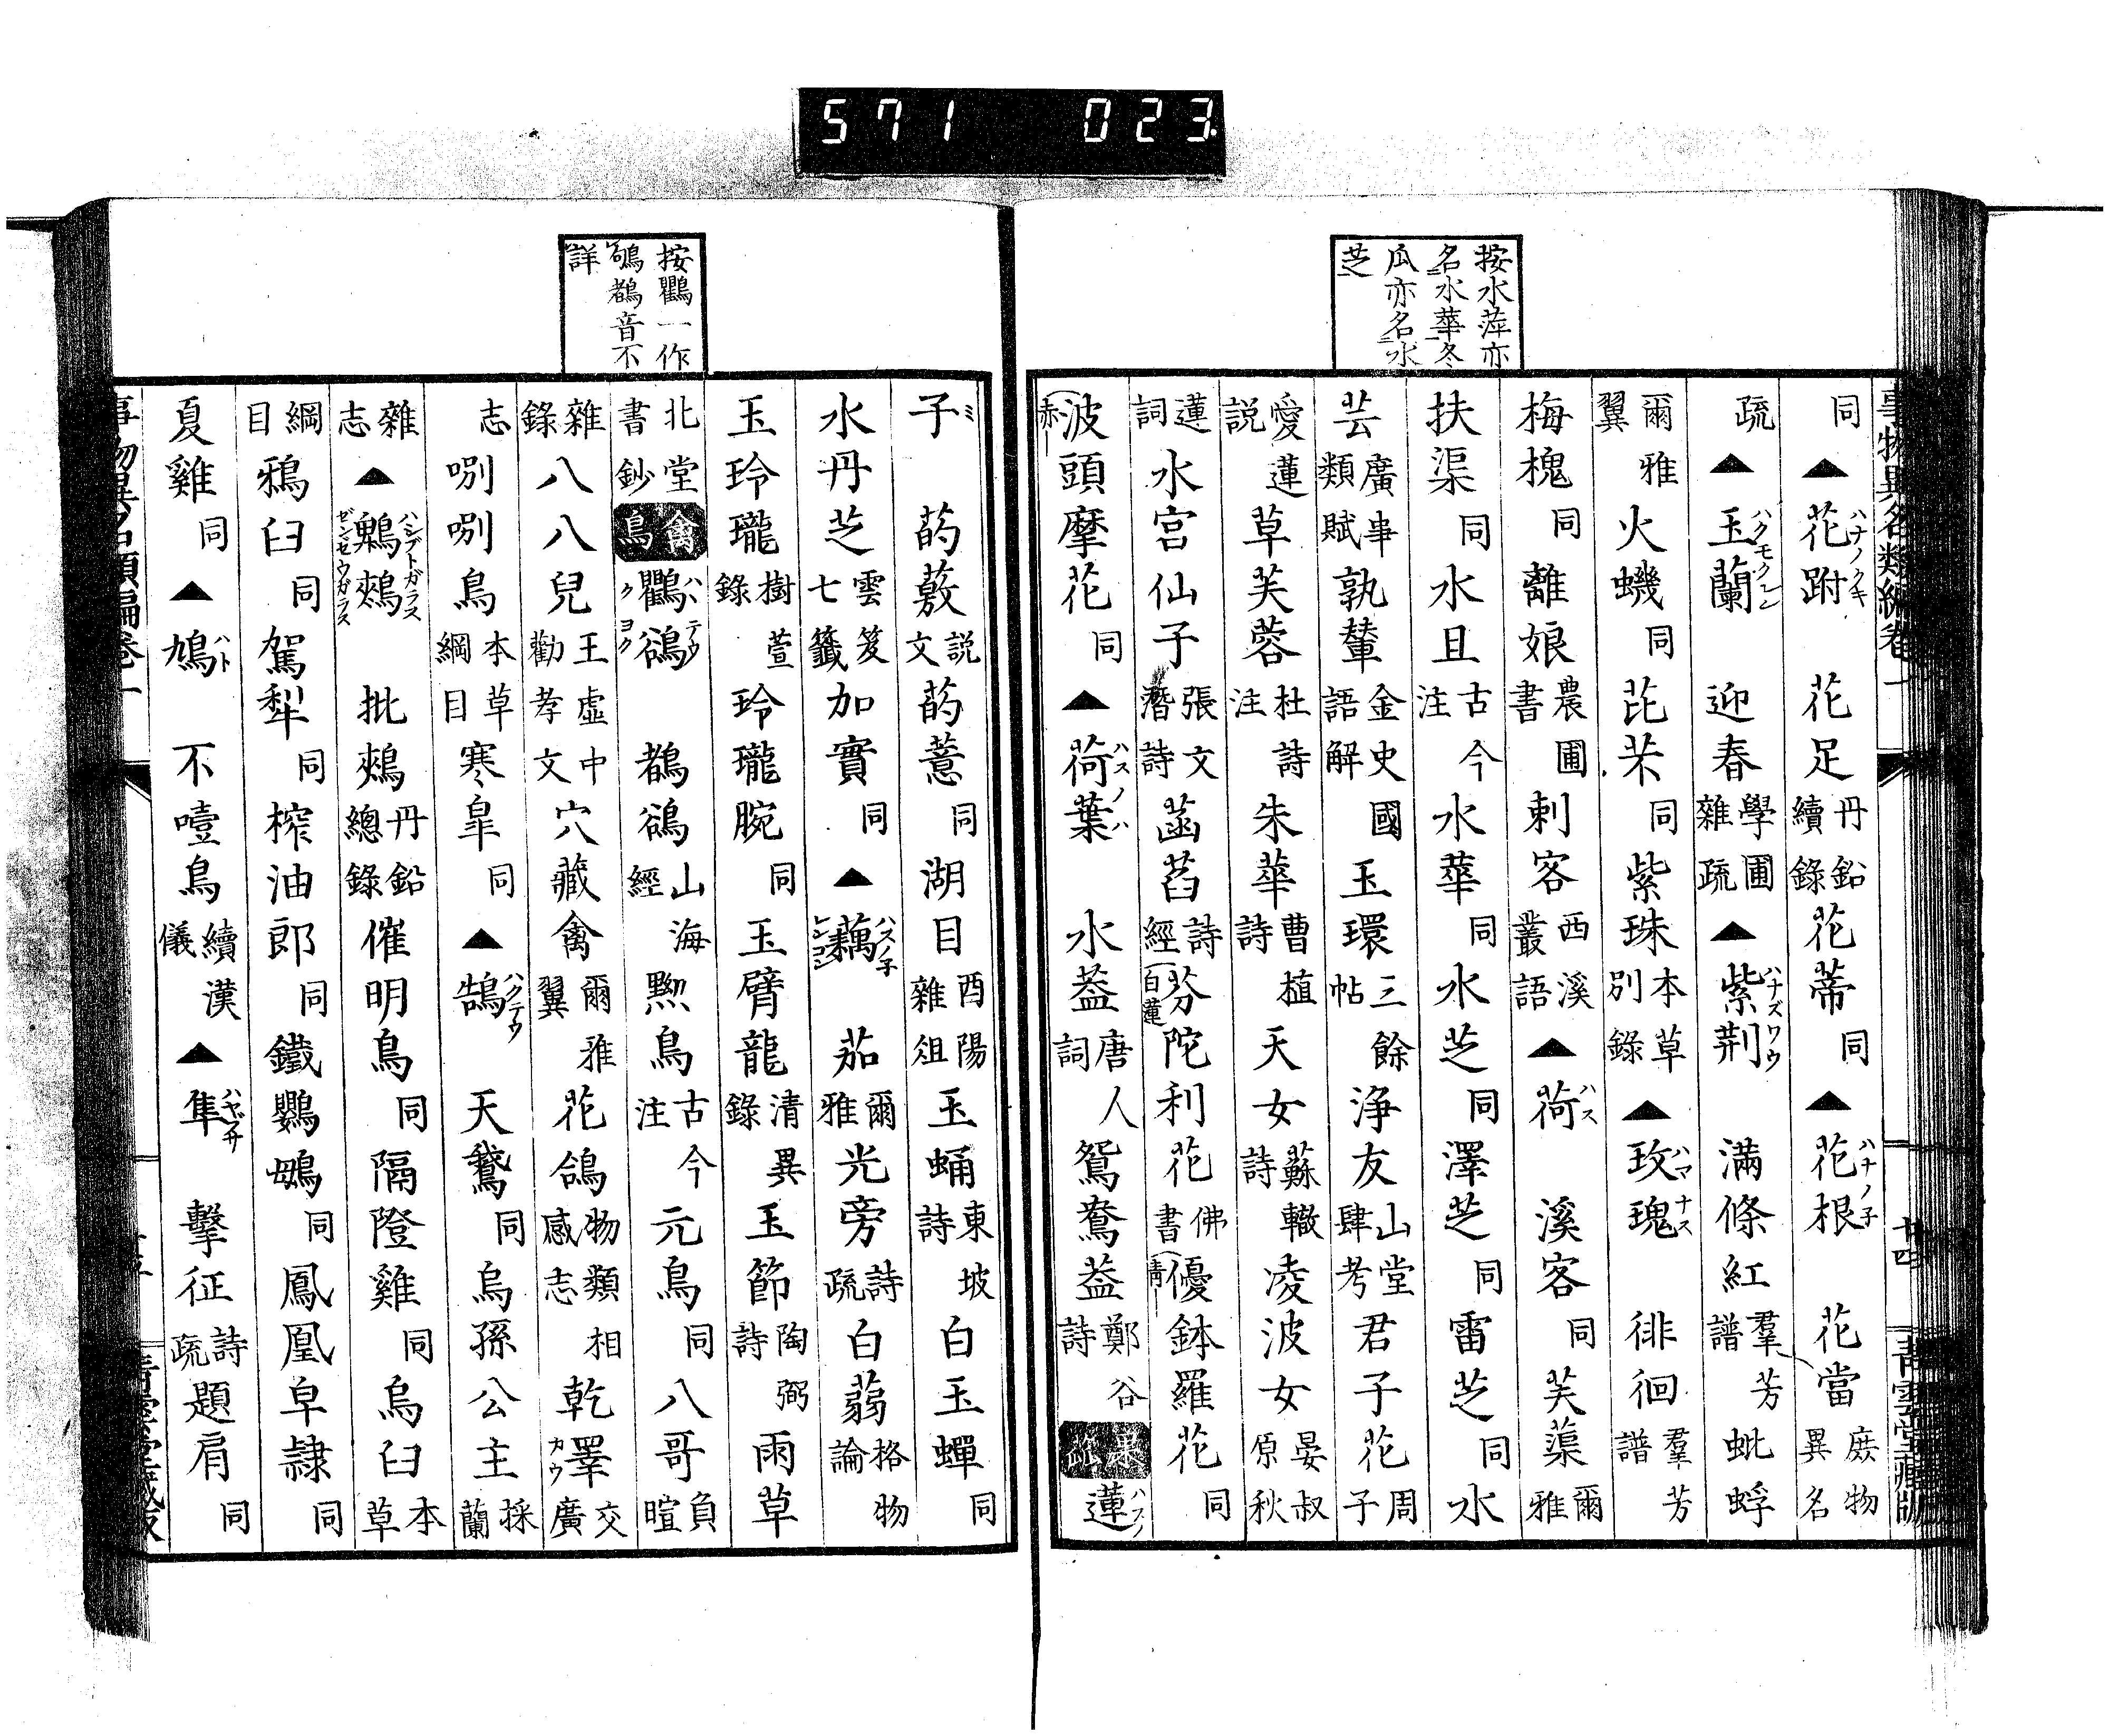 571 023
按水萍亦
名水華冬
瓜亦名水
芝
事物異名類編卷一 廿四 青雲堂藏版
同▲花跗ハナノクキ 花足丹鉛續錄花蒂同▲花根ハナノ子 花當庶物異名
疏▲玉蘭ハクモクレン 迎春學圃雜疏▲紫荆ハナズワウ 滿條紅羣芳譜蚍蜉
爾雅翼火蟣同芘芣同紫珠本草別錄▲玫瑰ハマナス 徘徊羣芳譜
梅槐同離娘農圃書刺客西溪叢語▲荷ハス 溪客同芙蕖爾雅
扶渠同水且古今注水華同水芝同澤芝同雷芝同水
芸廣事類賦孰輦金史國語解玉環三餘帖淨友山堂肆考君子花周子
愛蓮說草芙蓉杜詩注朱華曹植詩天女蘇轍詩凌波女晏叔原秋
蓮詞水宮仙子張文潛詩菡萏詩經(白蓮)芬陀利花佛書(青)優鉢羅花同
(赤)波頭摩花同▲荷葉ハスノハ 水葢唐人詞鴛鴦葢鄭谷詩 果蓏 蓮ハスノ
按鸜一作
鴝鵒音不
詳
子ミ 菂薂說文菂薏同湖目酉陽雜俎玉蛹東坡詩白玉蟬同
水丹芝雲笈七籤加實同▲藕ハス子レンコン 茄爾雅光旁詩疏白蒻格物論
玉玲瓏樹萱錄玲瓏腕同玉臂龍清異錄玉節陶弼詩雨草
北堂書鈔 禽鳥 鸜鵒ハハテウクヨク 鵒山海經黙鳥古今注元鳥同八哥負暄
雜錄八八兒王虛中勸孝文穴藏禽爾雅翼花鴿物類相感志乾睪カウ交廣
志唎唎鳥本草綱目寒皐同▲鵠ハクテウ 天鵞同烏孫公主採蘭
雜志▲鷝鴂ハシブトガラスゼンゼウガラス 批鴂丹鉛總錄催明鳥同隔隥雞同烏臼本草
綱目鴉臼同駕犁同榨油郎同鐵鸚鴟同鳳凰皁隸同
夏雞同▲鳩ハト 不噎鳥續漢儀▲隼ハヤブサ 擊征詩疏題肩同